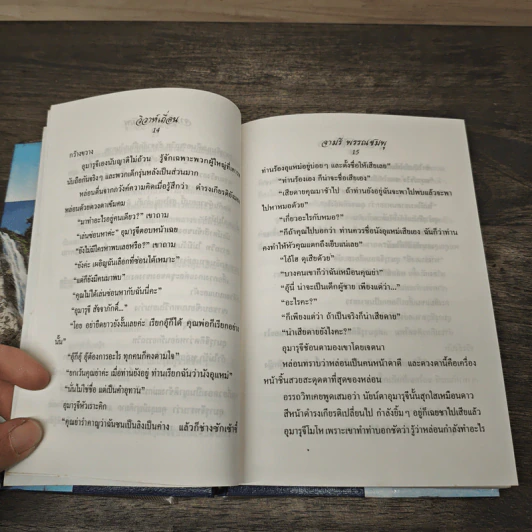 วิวาห์เถื่อน
14
กว้างขวาง
อุมารุจีเองนับญาติไม่ถ้วน รู้จักเฉพาะพวกผู้ใหญ่ที่
นับถือกันจริงๆ และพวกเด็กรุ่นหลังเป็นส่วนมาก
หล่อนตื่นจากภวังค์ความคิดเมื่อรู้สึกว่า ดำรงเกียรติ
หล่อนด้วยดวงตาเข้มคม
“มาทำอะไรอยู่คนเดียว?” เขาถาม
“เล่นซ่อนหาค่ะ” อุมารุจีตอบหน้าเฉย
“ยังไม่มีใครหาพบเลยหรือ?” เขาถาม
“ยังค่ะ เผอิญฉันเลือกที่ซ่อนได้เหมาะ”
“แต่ก็ยังมีคนมาพบ”
“คุณไม่ได้เล่นซ่อนหากับฉันนี่คะ”
“อุมารุจี สัจจาภักดิ์...”
“โธ่ อย่ายืดยาวยังงั้นเลยค่ะ เรียกอู้ก็ได้ คุณพ่อก็เรียกอย่าง
นั้น”
“อู้ก็อู้ อู้ต้องการอะไร ทุกคนก็คงตามใจ”
“ยกเว้นคุณย่าค่ะ เมื่อท่านยังอยู่ ท่านเรียกฉันว่านังอูแหม่”
“นั่นไม่ใช่ชื่อ แต่เป็นคำอุทาน”
อุมารุจีหัวเราะคิก
“คุณย่ารำคาญว่าฉันซนเป็นลิงเป็นค่าง แล้วก็ช่างซักเซ้าซี้
จามรี พรรณชมพู
15
ท่านร้องอูแหม่อยู่บ่อยๆ และตั้งชื่อให้เสียเลย”
“ท่านร้องเอง ก็น่าจะชื่อเสียเอง”
“เสียดายคุณมาช้าไป ถ้าท่านยังอยู่ฉันจะพาไปพบแล้วจะพา
ไปหาหมอด้วย”
“เกี่ยวอะไรกับหมอ?”
“ก็ถ้าคุณไปบอกว่า ท่านควรชื่อนังอูแหม่เสียเอง ฉันก็ว่าท่าน
คงทำให้หัวคุณแตกถึงเย็บแน่เลย”
“โอ้โฮ ดุเสียด้วย”
“บางคนเขาก็ว่าฉันเหมือนคุณย่า”
“อู้นี่ น่าจะเป็นเด็กผู้ชาย เพียงแต่ว่า...”
“อะไรคะ?”
“ก็เพียงแต่ว่า ถ้าเป็นจริงก็น่าเสียดาย”
“น่าเสียดายยังไงคะ?”
อุมารุจีช้อนตามองเขาโดยเจตนา
หล่อนทราบว่าหล่อนเป็นคนหน้าตาดี และดวงตานี้คือเครื่อง
หน้าชิ้นสวยสะดุดตาที่สุดของหล่อน
อรรถวิทเคยพูดเสมอว่า นัยน์ตาอุมารุจีนั้นสุกใสเหมือนดาว
สีหน้าดำรงเกียรติเปลี่ยนไป กำลังยิ้มๆ อยู่ก็เฉยชาไปเสียแล้ว
อุมารุจีโมโห เพราะเขาทำท่าบอกชัดว่า รู้ว่าหล่อนกำลังทำอะไร